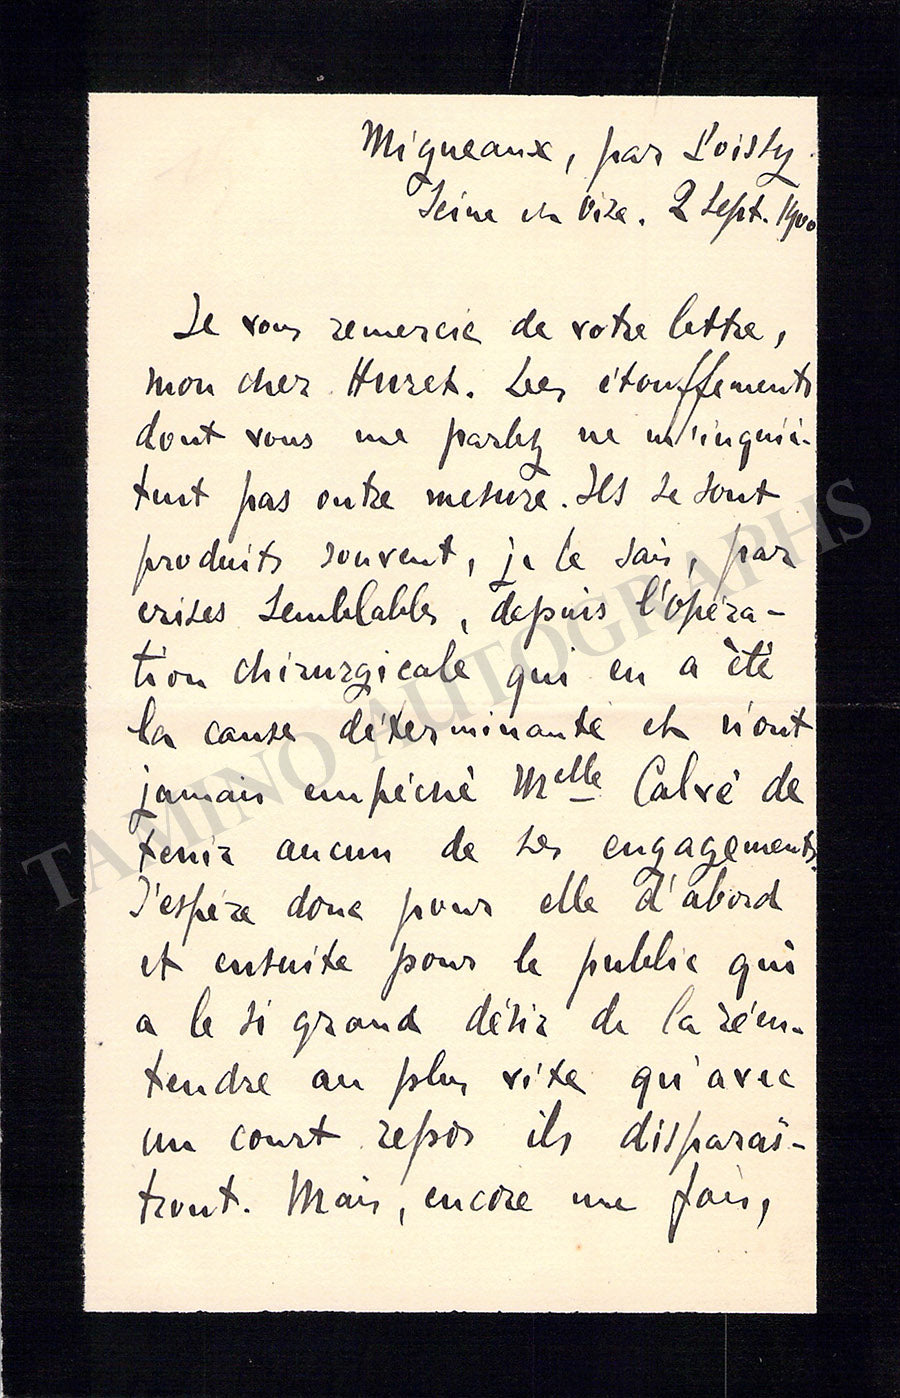 Migneaux, par Poissy.
Seine et Oise. 2 Sept. 1900
Je vous remercie de votre lettre,
mon cher Huret. Les étouffements
dont vous me parlez ne m'inquiè-
tent pas outre mesure. Ils se sont
produits souvent, je le sais, par
crises semblables, depuis l'opéra-
tion chirurgicale qui en a été
la cause déterminante et n'ont
jamais empêché Melle Calvé de
tenir aucun de ses engagements.
J'espère donc pour elle d'abord
et ensuite pour le public qui
a le si grand désir de la réen-
tendre au plus vite qu'avec
un court repos ils disparaî-
tront. Mais, encore une fois,
TAMINO AUTOGRAPHS